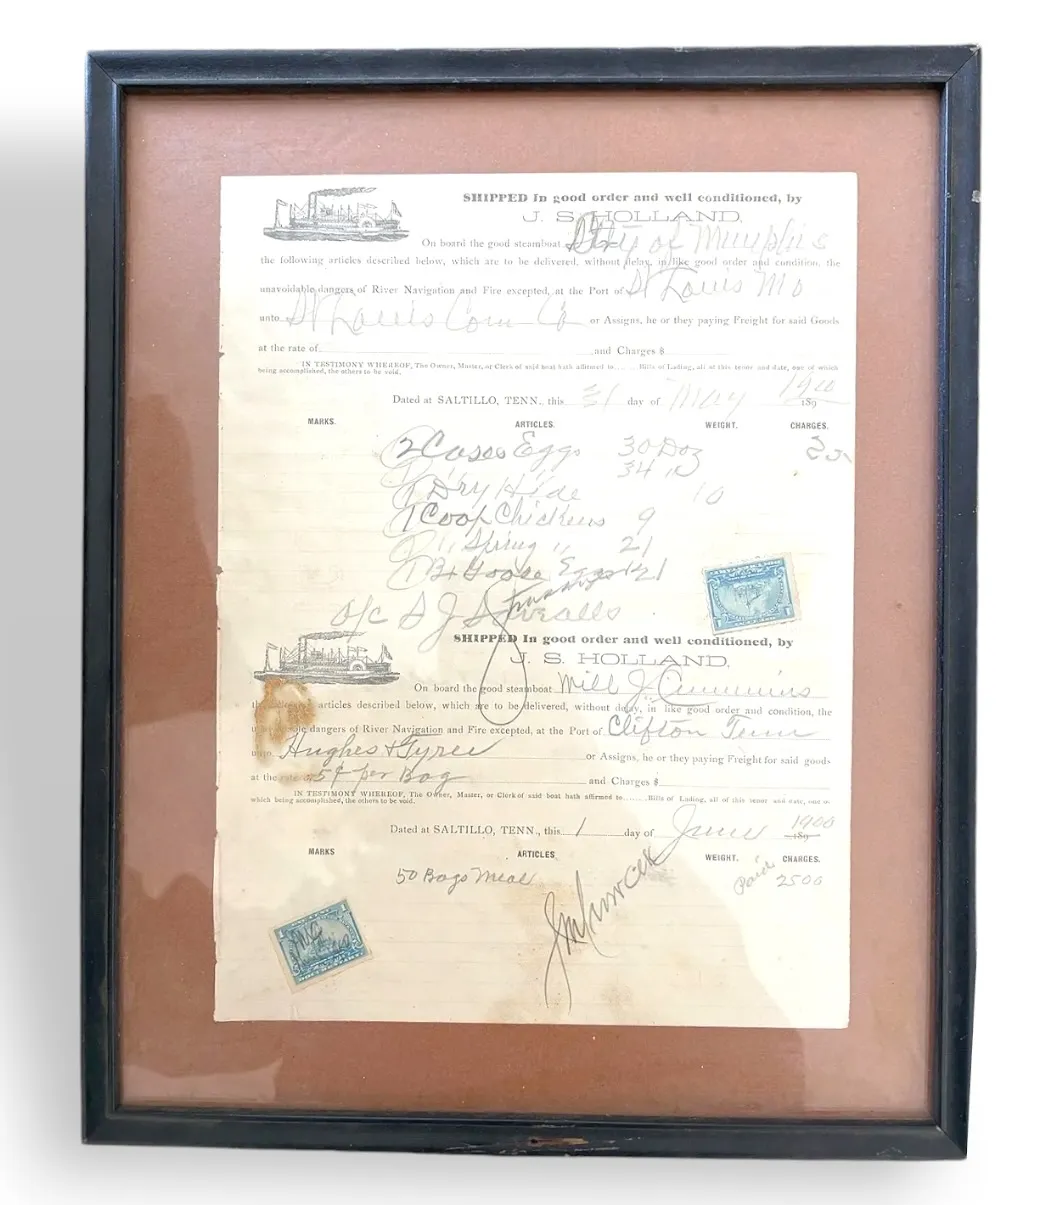 SHIPPED In good order and well conditioned, by
J. S. HOLLAND,
On board the good steamboat City of Memphis
the following articles described below, which are to be delivered, without delay, in like good order and condition, the
unavoidable dangers of River Navigation and Fire excepted, at the Port of St Louis Mo
unto St Louis Com Co or Assigns, he or they paying Freight for said Goods
at the rate of and Charges $
IN TESTIMONY WHEREOF, The Owner, Master, or Clerk of said boat hath affirmed to ...... Bills of Lading, all of this tenor and date, one of which
being accomplished, the others to be void.
Dated at SALTILLO, TENN., this 31 day of May 1900 189
MARKS. ARTICLES. WEIGHT. CHARGES.
2 Cases Eggs 30 Doz 25
34 "
1 Dry Hide 10
1 Coop Chickens 9
1 " Spring " 21
1 Bx Goose Eggs 121
a/c S J
SHIPPED In good order and well conditioned, by
J. S. HOLLAND,
On board the good steamboat Will J. Cummins
the following articles described below, which are to be delivered, without delay, in like good order and condition, the
unavoidable dangers of River Navigation and Fire excepted, at the Port of Clifton Tenn
unto Hughes & Tyree or Assigns, he or they paying Freight for said goods
at the rate of 5¢ per Bag and Charges $
IN TESTIMONY WHEREOF, The Owner, Master, or Clerk of said boat hath affirmed to ...... Bills of Lading, all of this tenor and date, one o-
which being accomplished, the others to be void.
Dated at SALTILLO, TENN., this 1 day of June 1900 189
MARKS ARTICLES. WEIGHT. CHARGES.
50 Bags Meal Paid 2500